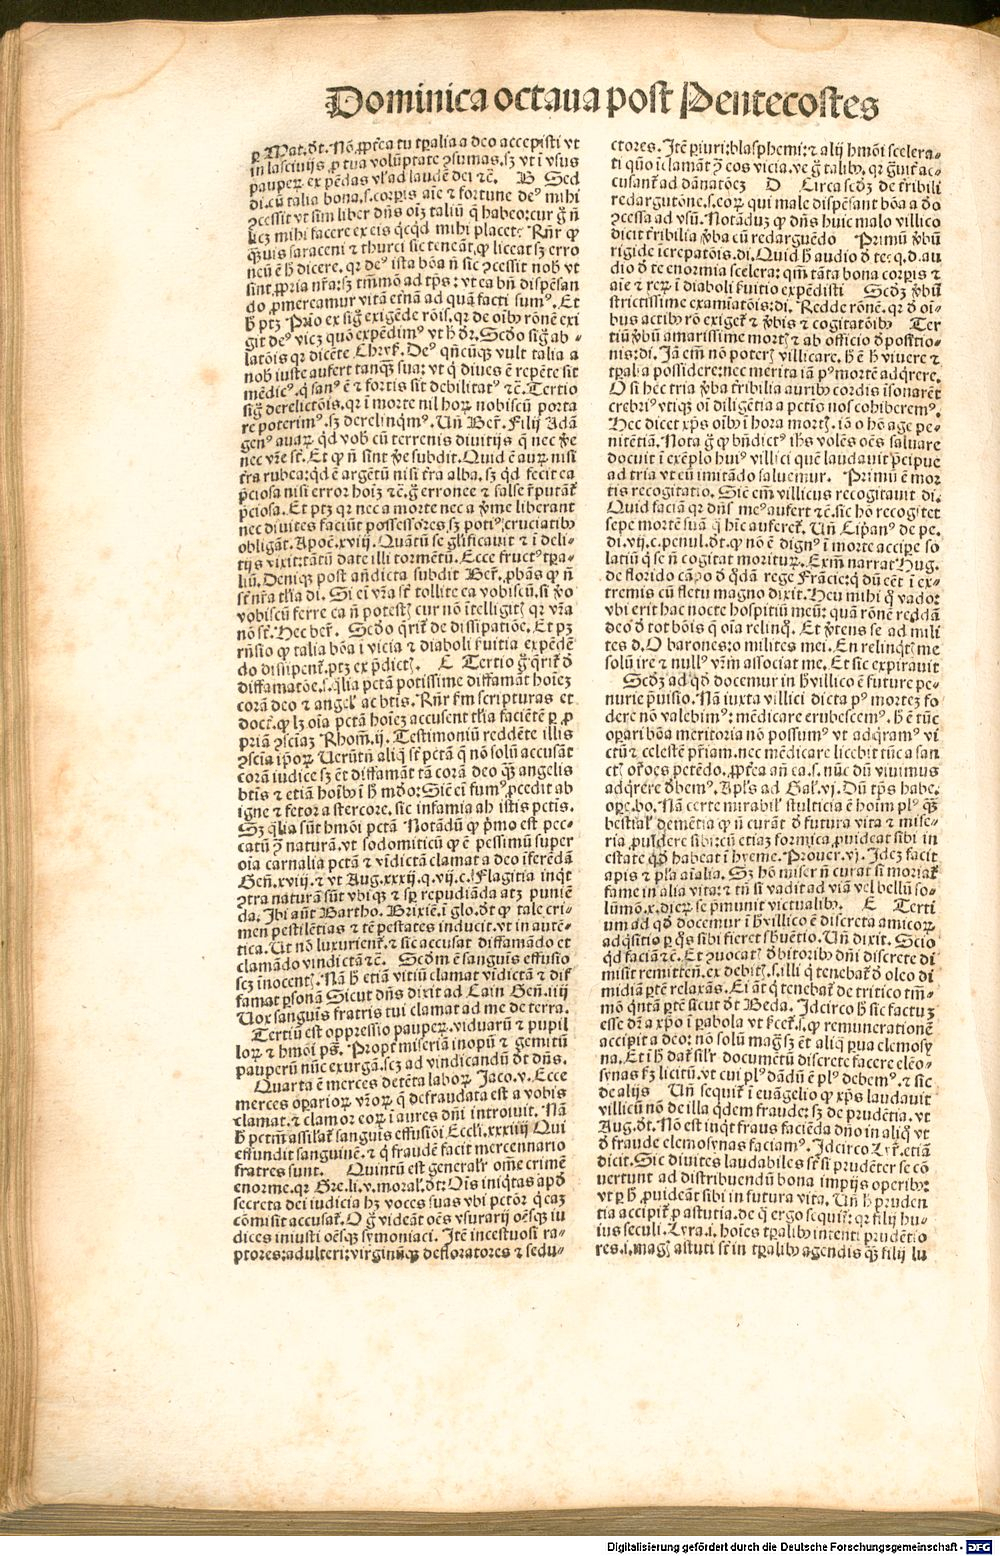 Dominica octaua post Pentecostes
ꝑ Mat. d̄t. Nō ꝓpt̄ea tu tꝑalia a deo accepisti vt
in lasciuijs ꝓ tua volūptate ꝯsumas. sꝫ vt ī vsus
pauperꝝ expēdas vꝉ ad laudē dei ⁊č. B Sed
di. cū talia bona. s. corꝑis aīe ⁊ fortune deꝰ mihi
ꝯcessit vt sim liber dn̄s oīꝫ taliū q̄ habeo: cur g̊ n̄
licꝫ mihi facere ex eis qͥcqd mihi placet: Rn̄r ꝙ
qͣuis saraceni ⁊ thurci sic teneāt. ꝙ liceat sꝫ erro
neū ē h̄ dicere. qꝛ deꝰ ista bōa n̄ sic ꝯcessit nob̄ vt
sint ꝓpria nr̄a: sꝫ tm̄mō ad tp̄s: vt ea bn̄ dispensan
do ꝓmereamur vitā et̄nā ad quā facti sumꝰ. Et
h̄ ptꝫ Pͥmo ex sig̊ exigēde rōis. qꝛ de oībꝰ rōnē exi
git deꝰ vicꝫ quō expēdimꝰ vt h̄ dr̄. Scd̄o sig̊ ab-
latōis qꝛ dicēte Chryẜ. Deꝰ qn̄cūqꝫ vult talia a
nob̄ iuste aufert tanqͣꝫ sua: vt q̇ diues ē repēte sit
mēdicꝰ. q̇ sanꝰ ē ⁊ fortis sit debilitatꝰ ⁊č. Tertio
sig̊ derelictōis. qꝛ ī morte nil horꝝ nobiscū porta
re poterimꝰ. sꝫ derelinqmꝰ. Un̄ Ber̄. Filij Adā
genꝰ auarꝝ qd vob̄ cū terrenis diuitijs q̄ nec ꝟe
nec vr̄e st̄. Et ꝙ n̄ sint ꝟe subdit. Quid ē aurꝝ nisi
t̄ra rubea: qd ē argētū nisi t̄ra alba. sꝫ qd fecit ea
p̄ciosa nisi error hoīꝫ ⁊č. g̊ erronee ⁊ false r̄putāt̄
p̄ciosa. Et ptꝫ qꝛ nec a morte nec a ꝟme liberant
nec diuites faciūt possessores. sꝫ potiꝰ cruciatibꝰ
obligāt. Apoč. xviij. Quātū se gl̄ificauit ⁊ ī deli-
tijs vixit: tātū date illi tormētū. Ecce fructꝰ tꝑa-
liū. Deniqꝫ post an̄dicta subdit Ber̄. ꝓbās ꝙ n̄
st̄ nr̄a tl̄ia di. Si ei vr̄a st̄ tollite ea vobiscū. si ꝟo
vobiscū ferre ea n̄ potestꝭ cur nō ītelligitꝭ qꝛ vr̄a
nō st̄. Hec ber̄. Scd̄o q̄rit̄ de dissipatiōe. Et pꝫ
rn̄sio ꝙ talia bōa ī vicia ⁊ diaboli ẜuitia expēdē
do dissipent̄. ptꝫ ex p̄dictꝭ. C Tertio g̊ q̄rit̄ d̄
diffamatōe. s. q̄lia pctā potissime diffamāt hoīeꝫ
corā deo ⁊ angeꝉ ac btīs. Rn̄r ẜm scripturas et
doct̄. ꝙ lꝫ oīa pctā hoīeꝫ accusent tn̄ faciētē ꝑ ꝓ
priā ꝯsciaꝫ Rhom̄. ij. Testimoniū reddēte illis
ꝯscia ip̄oꝝ Uerūtn̄ aliq̄ st̄ pctā q̄ nō solū accusāt
corā iudice sꝫ et diffamāt tā corā deo qͣꝫ angelis
btīs ⁊ etiā hoībꝰ ī h̄ mūdo: Sic ei fumꝰ ꝓcedit ab
igne ⁊ fetor a stercore. sic infamia ab istis pctīs.
Sꝫ q̄lia sūt hmōi pctā Notādū ꝙ pͥmo est pec-
catū ꝯ̄ naturā. vt sodomiticū ꝙ ē pessimū super
oīa carnalia pctā ⁊ vīdictā clamat a deo īferēdā
Gen̄. xviij. ⁊ vt Aug. xxxij. q. vij. c. Flagitia inqͥt
ꝯtra naturā sūt vbiqꝫ ⁊ sꝑ repudiāda atqꝫ puniē
da. Ibi aūt Bartho. Brixiē. ī glo. d̄t ꝙ tale cri-
men pestilētias ⁊ tēpestates inducit. vt in autē-
tica. Ut nō luxurient̄. ⁊ sic accusat diffamādo et
clamādo vindictā ⁊č. Scd̄m ē sanguīs effusio
scꝫ īnocentꝭ. Nā h̄ etiā vitiū clamat vīdictā ⁊ dif
famat ꝑsonā Sicut dn̄s dixit ad Cain Gen̄. iiij
Uox sanguīs fratris tui clamat ad me de terra.
Tertiū est oppressio pauperꝝ. viduarū ⁊ pupil
lorꝝ ⁊ hmōi ps̄. Propt̄ miseriā inopū ⁊ gemitū
pauperū nūc exurgā. scꝫ ad vindicandū d̄t dn̄s.
Quarta ē merces detēta laborꝝ Jaco. v. Ecce
merces oꝑatiorꝝ vr̄orꝝ q̄ defraudata est a vobis
clamat. ⁊ clamor eorꝝ ī aures dn̄i introiuit. Nā
h̄ pctm̄ assilat̄ sanguis effusiōi Eccꝉi. xxxiiij Qui
effundit sanguinē. ⁊ q̇ fraudē facit mercennario
fratres sunt. Quintū est generalr̄ om̄e crimē
enorme. qꝛ Gre. li. v. moral̄. d̄t: Oīs iniqͥtas apd̄
secreta dei iudicia hꝫ voces suas vbi pctōr q̄ eaꝫ
cōmisit accusat̄. O g̊ videāt oēs vsurarij oēsqꝫ iu
dices iniusti oēsqꝫ symoniaci. Itē incestuosi ra-
ptores: adulteri: virginūqꝫ defloratores ⁊ sedu-
ctores. Itē ꝑiuri: blasphemi: ⁊ alij hmōi scelera-
ti quō īclamāt ꝯ̄ eos vicia. ve g̊ talibꝰ. qꝛ g̊uit̄ ac-
cusant̄ ad dānatōeꝫ D Circa scd̄ꝫ de t̄ribili
redargutōne. s. eorꝝ qui male dispēsant bōa a d̄o
ꝯcessa ad vsū. Notādūꝫ ꝙ dn̄s huic malo villico
dicit t̄ribilia ꝟba cū redarguēdo Primū ꝟbū
rigide īcrepatōis. di. Quid h̄ audio d̄ te: q. d. au
dio d̄ te enormia scelera: qm̄ tāta bona corꝑis ⁊
aīe ⁊ rerꝝ ī diaboli ẜuitio expēdisti Scd̄ꝫ ꝟbū
strictissime examīatōis: di. Redde rōnē. qꝛ d̄ oī-
bus actibꝰ rō exiget̄ ⁊ ꝟbis ⁊ cogitatōibꝰ Ter
tiū ꝟbū amarissime mortꝭ ⁊ ab officio d̄positio-
nis: di. Jā em̄ nō poterꝭ villicare. h̄ ē h̄ viuere ⁊
tꝑalia possidere: nec merita iā pꝰ mortē adqͥrere.
O si hec tria ꝟba t̄ribilia auribꝰ cordis īsonarēt
crebriꝰ vtiqꝫ oī diligētia a pctīs nos cohiberemꝰ.
Hec dicet xp̄s oībꝰ ī hora mortꝭ. iā o hō age pe-
nitētiā. Nota g̊ ꝙ bn̄dictꝰ ih̄s volēs oēs saluare
docuit ī exēplo huiꝰ villici quē laudauit p̄cipue
ad tria vt eū imitādo saluemur. Primū ē mor
tis recogitatio. Sic em̄ villicus recogitauit di.
Quid faciā qꝛ dn̄s meꝰ aufert ⁊č. sic hō recogitet
sepe mortē suā q̄ hīc auferet̄. Un̄ Cip̄anꝰ de pe.
di. vij. c. penul. d̄t. ꝙ nō ē dignꝰ ī morte accipe so
latiū q̇ se n̄ cogitat moriturꝝ. Exm̄ narrat Hug.
de florido cāpo d̄ q̊dā rege Frācie: q̇ dū cet̄ ī ex-
tremis cū fletu magno dixit. Heu mihi q̊ vado:
vbi erit hac nocte hospitiū meū: quā rōnē reddā
deo d̄ tot bōis q̄ oīa relinq̊. Et ꝟtens se ad mili
tes d̄. O barones: o milites mei. En relinqͥtꝭ me
solū ire ⁊ nullꝰ vr̄m associat me. Et sic expirauit
Scd̄ꝫ ad qd̄ docemur in h̄ villico ē future pe-
nurie p̄uisio. Nā iuxta villici dicta pꝰ mortez fo
dere nō valebimꝰ: mēdicare erubescemꝰ. h̄ ē tūc
oꝑari bōa meritoria nō possumꝰ vt adqͥramꝰ vi
ctū ⁊ celestē pr̄iam. nec mēdicare licebit tūc a san
ctꝭ oēs petēdo. ꝓpt̄ea an̄ ea. s. nūc dū viuimus
adqͥrere d̄bemꝰ. Apl̄s ad Gal̄. vj. Dū tp̄s habe.
oꝑe. bo. Nā certe mirabil̄ stulticia ē hoīm plꝰ qͣꝫ
bestial̄ demētia ꝙ n̄ curāt d̄ futura vita ⁊ mise-
ria ꝓuidere sibi: cū etiaꝫ formica ꝓuideat sibi in
estate qd̄ habeat ī hyeme. Prouer. vj. Idez facit
apis ⁊ pl̄a aīalia. Sꝫ hō miser n̄ curat si moriat̄
fame in alia vita: ⁊ tn̄ si vadit ad viā vel bellū so-
lūmō. x. dierꝝ se p̄munit victualibꝰ. E Terti
um ad qd̄ docemur ī h̄ villico ē discreta amicorꝝ
adqͥsitio ꝑ q̊s sibi fieret sb̄uētio. Un̄ dixit. Scio
qd faciā ⁊č. Et ꝯuocatꝭ d̄bitoribꝰ dn̄i discrete di
misit remittēn̄. ex debitꝭ. s. illi q̇ tenebat̄ d̄ oleo di
midiā ꝑtē relaxās. Ei aūt q̇ tenebat̄ de tritico tm̄-
mō qͥntā ꝑtē sicut d̄t Beda. Idcirco h̄ sic factuꝫ
esse dr̄ a xp̄o ī ꝑabola vt ẜcet̄. s. ꝙ remunerationē
accipit a deo: nō solū mag̊ꝫ sꝫ et aliq̄ ꝑua elemosy
na. Et ī h̄ dat̄ silr̄ documētū discrete facere eleō-
synas ẜꝫ licitū. vt cui plꝰ dādū ē plꝰ debemꝰ. ⁊ sic
de alijs Un̄ sequit̄ ī euāgelio ꝙ xp̄s laudauit
villicū nō de illa qͥdem fraude: sꝫ de prudētia. vt
Aug. d̄t. Nō est inqͥt fraus faciēda dn̄o in aliq̊ vt
d̄ fraude elemosynas faciamꝰ. Idcirco Lyr̄. etiā
dicit. Sic diuites laudabiles st̄ si prudēter se cō
uertunt ad distribuendū bona impijs operibꝰ:
vt ꝑ h̄ ꝓuideāt sibi in futura vita. Un̄ h̄ pruden
tia accipit̄ ꝓ astutia. de q̄ ergo sequit̄: qꝛ filij hu-
ius seculi. Lyra. i. hoīes tꝑalibꝰ intenti prudētio
res. i. magꝭ astuti st̄ in tꝑalibꝰ agendis qͣꝫ filij lu
Digitalisierung gefördert durch die Deutsche Forschungsgemeinschaft - DFG